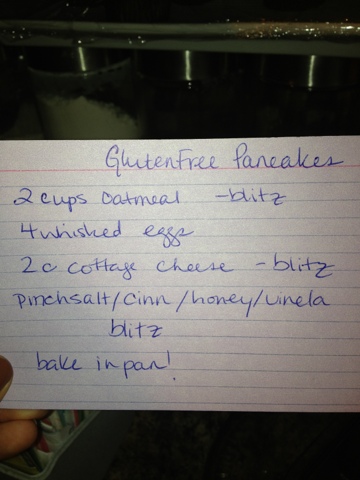 Gluten Free Pancakes
2 cups oatmeal - blitz
4 whisked eggs
2c cottage cheese - blitz
pinch salt/cinn/honey/vinela
blitz
bake in pan!